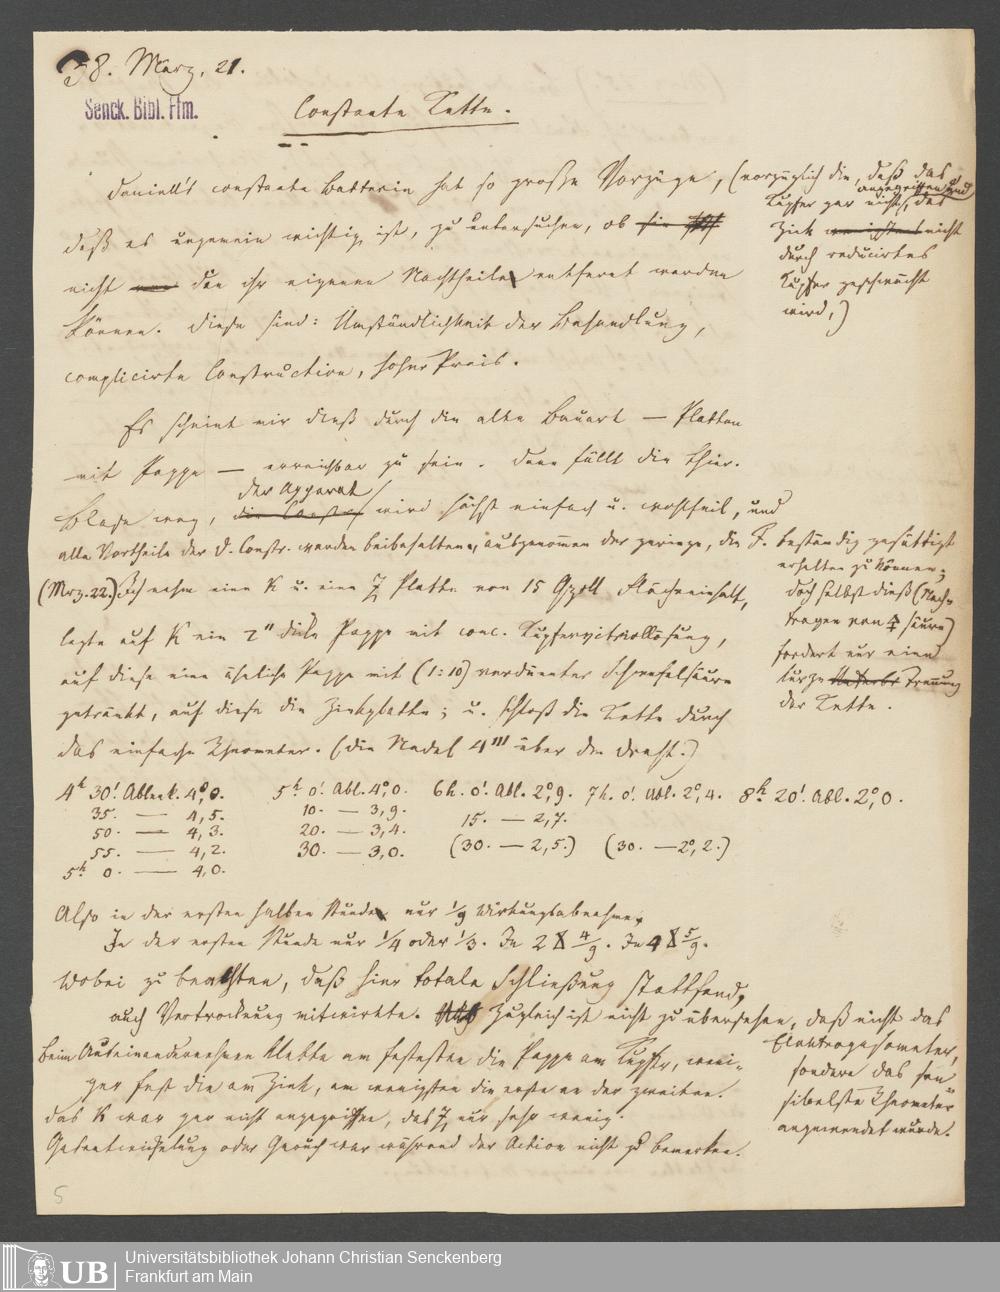 38. März, 21.
Senck. Bibl. Ffm.
Constante Kette.
Daniell's constante Batterie hat so große Vorzüge, (vorzüglich die, daß das
Kupfer gar nicht angegriffen und das
Zink nicht
durch reducirtes
Kupfer geschwächt
wird,)
daß es ungemein wichtig ist, zu untersuchen, ob
nicht die ihr eigenen Nachtheile entfernt werden
können. Diese sind: Umständlichkeit der Behandlung,
complicirte Construction, hoher Preis.
Es scheint mir dieß durch die alte Bauart — Platten
mit Pappe — erreichbar zu sein. Dann fällt die thier.
Blase weg, der Apparat wird höchst einfach u. wohlfeil, und
alle Vortheile der D. Constr. werden beibehalten, ausgenommen der geringe, die F. beständig gesättigt
erhalten zu können;
doch selbst dieß (Nach-
tragen von säure)
fordert nur eine
kurze Trennung
der Kette.
(Mrz. 22.) Ich nahm eine K u. eine Z Platte von 15 Qzoll Flächeninhalt,
legte auf K ein 2" dicke Pappe mit conc. Kupfervitriollösung,
auf diese eine ähnliche Pappe mit (1:10) verdünnter Schwefelsäure
getränkt, auf diese die Zinkplatte; u. schloß die Kette durch
das einfache Rheometer. (die Nadel 4''' über dem Draht.)
4h 30'. Ablenk. 4°,8.
35. — 4,5.
50. — 4,3.
55. — 4,2.
5h 0. — 4,0.
5h 0'. Abl. 4°,0.
10. — 3,9.
20. — 3,4.
30. — 3,0.
6h. 0'. Abl. 2°,9.
15. — 2,7.
(30. — 2,5.)
7h. 0'. Abl. 2°,4.
(30. — 2°,2.)
8h 20'. Abl. 2°,0.
Also in der ersten halben Stunde nur 1/9 Wirkungsabnahme,
In der ersten Stunde nur 1/4 oder 1/3. In 2 4/9. In 4 5/9.
Wobei zu beachten, daß hier totale Schließung stattfand,
auch Vertrocknung mitwirkte. Zugleich ist nicht zu übersehen, daß nicht das
Elektrogasometer,
sondern das sen-
sibelste Rheometer
angewendet wurde.
Beim Auseinandernehmen klebte am festesten die Pappe am Kupfer, weni-
ger fest die am Zink, am wenigsten die erste an der zweiten.
Das K war gar nicht angegriffen, das Z nur sehr wenig.
Gasentwickelung oder Geruch war während der Action nicht zu bemerken.
5
UB
Universitätsbibliothek Johann Christian Senckenberg
Frankfurt am Main